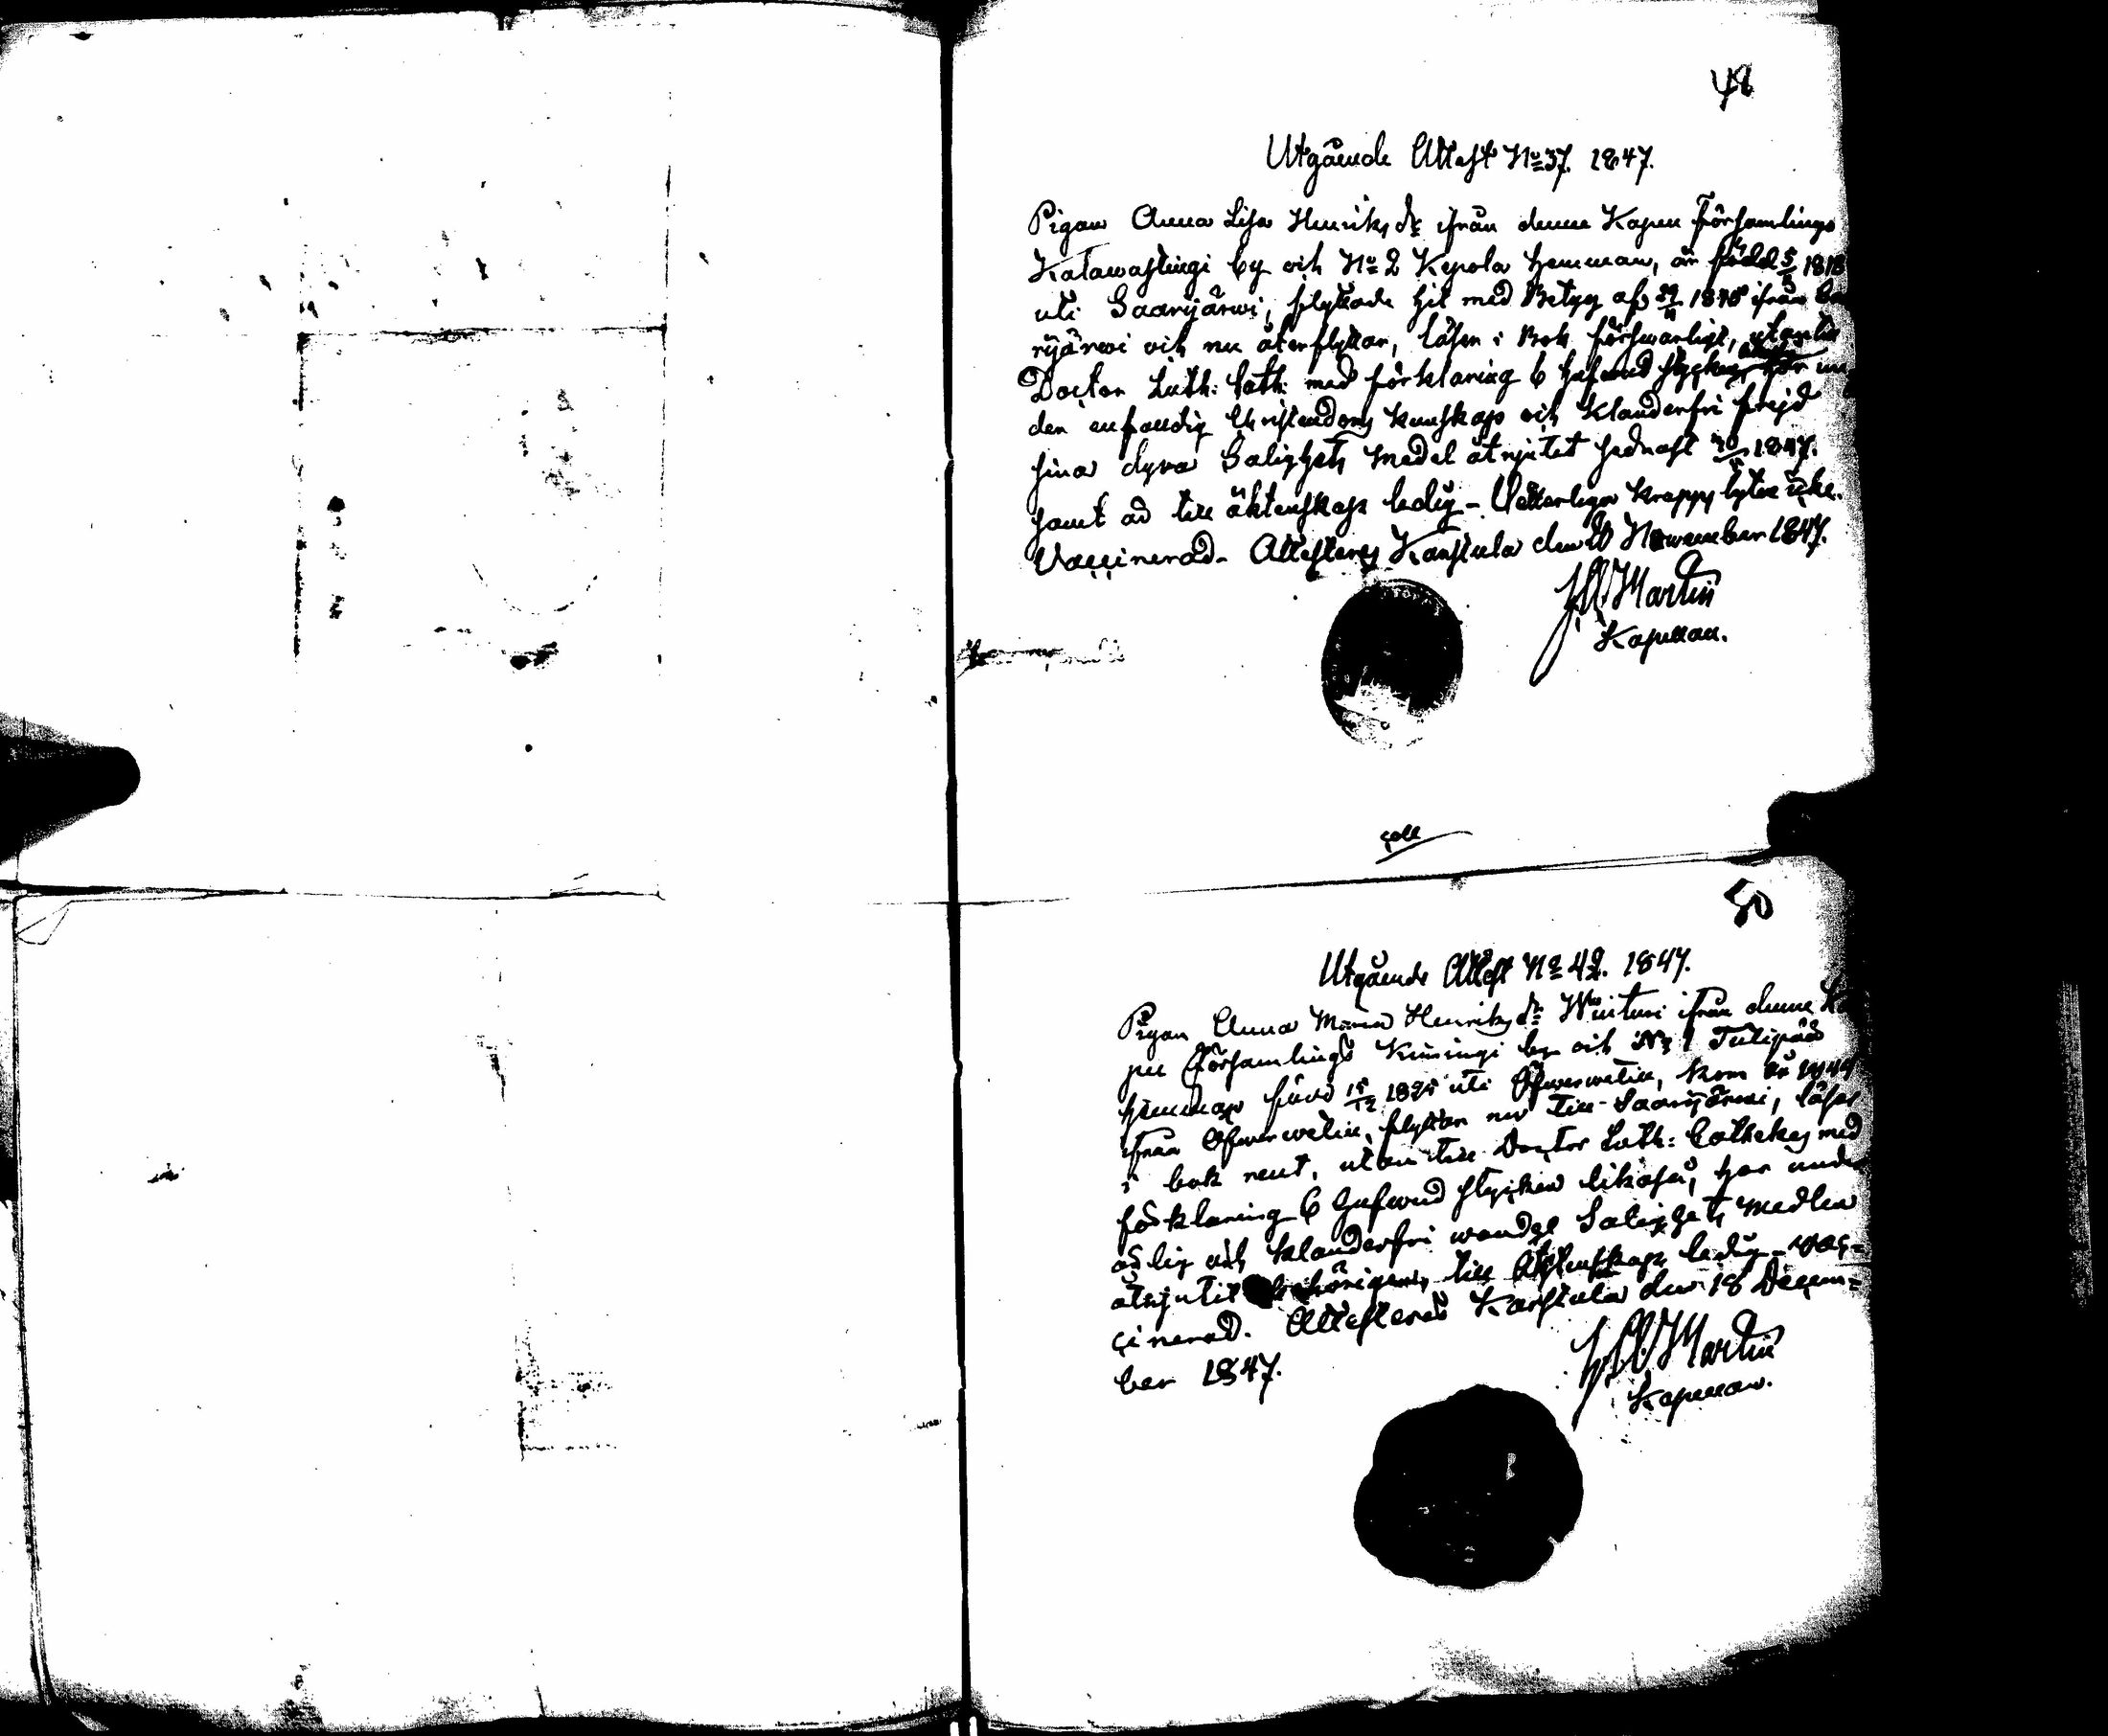 48
Utgående Attest No 37. 1847.
Pigan Anna Lisa Henriksdr ifrån denne Kapell Församlings
by och No 2 Kepola hemman, är född 5/3 1818
uti Saarijärvi, flyttade hit med Betyg af ifrån Saa
rijärvi och nu återflyttar, läser i Bok försvarligt, utan till
Doctor Luth: Cath: med förklaring 6 hufvud stycken har un
den enfaldig Christendoms kunskap och klanderfri frejd
sina dyra Salighets medel åtnjutet sednast 1847.
samt är till äktenskap ledig - Vetterligen kropps lyten icke.
Vaccinerad. Attesteras Karstula den 20 November 1847.
Martin
Kapellan.
50
Utgående Attest No 42. 1847.
Pigan Anna Maria Henriksdr ifrån denne Ka
pell Församlings Kimingi by och No 1 Tulipää
hemman född 15/12 1825 uti kom år 1844
ifrån flyttar nu till Saarijärvi, läser
i bok rent, utan till Doctor Luth: Cathekes med
förklaring 6 hufvud stycken likaså, har under
ärlig och klanderfri wandel Salighets medlen
åtnjutit behörigen, till Äktenskap ledig - vac-
cinerad. Attesteras Karstula den 18 Decem-
ber 1847.
Martin
Kapellan.